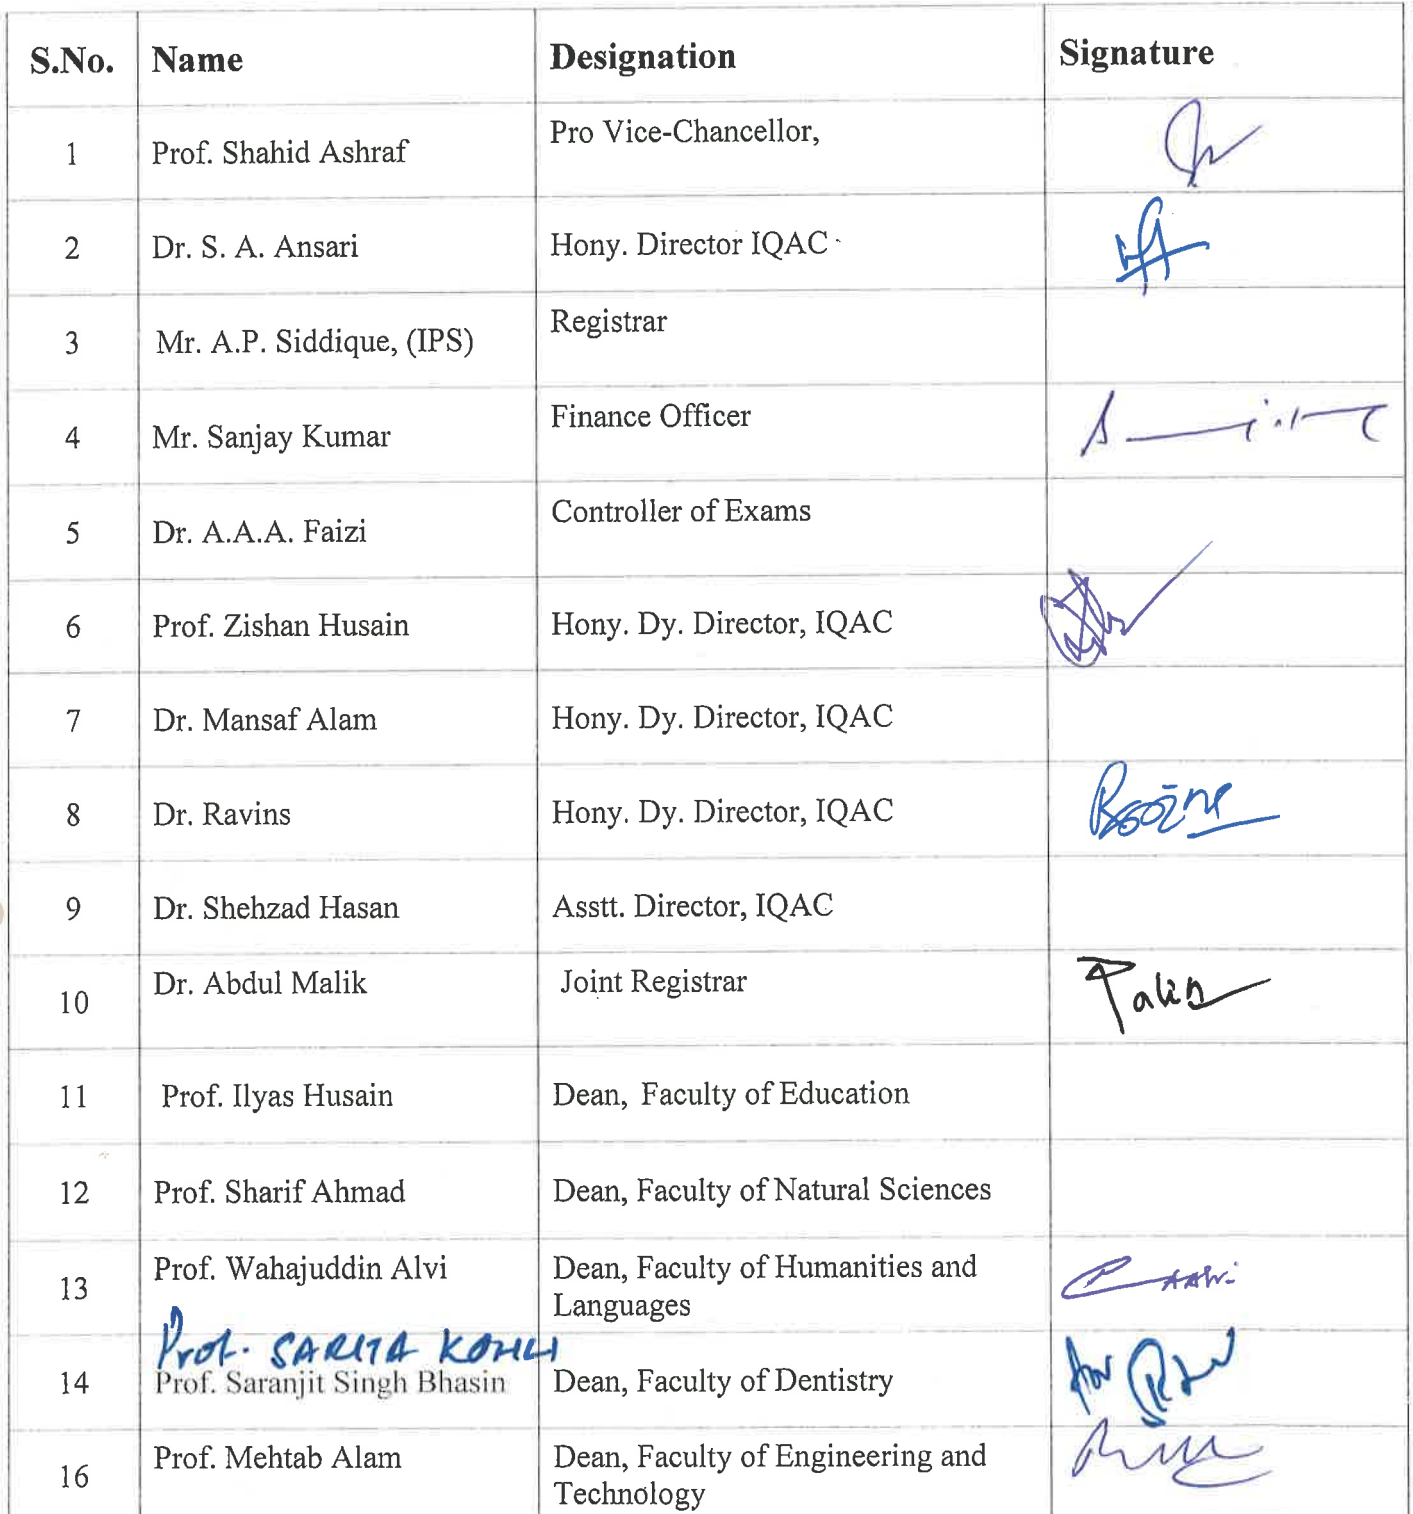 S.No. Name Designation Signature
1 Prof. Shahid Ashraf Pro Vice-Chancellor,
2 Dr. S. A. Ansari Hony. Director IQAC
3 Mr. A.P. Siddique, (IPS) Registrar
4 Mr. Sanjay Kumar Finance Officer
5 Dr. A.A.A. Faizi Controller of Exams
6 Prof. Zishan Husain Hony. Dy. Director, IQAC
7 Dr. Mansaf Alam Hony. Dy. Director, IQAC
8 Dr. Ravins Hony. Dy. Director, IQAC
9 Dr. Shehzad Hasan Asstt. Director, IQAC
10 Dr. Abdul Malik Joint Registrar
11 Prof. Ilyas Husain Dean, Faculty of Education
12 Prof. Sharif Ahmad Dean, Faculty of Natural Sciences
13 Prof. Wahajuddin Alvi Dean, Faculty of Humanities and
Languages
Prof. SARITA KOHLI
14 Prof. Saranjit Singh Bhasin Dean, Faculty of Dentistry
for
16 Prof. Mehtab Alam Dean, Faculty of Engineering and
Technology